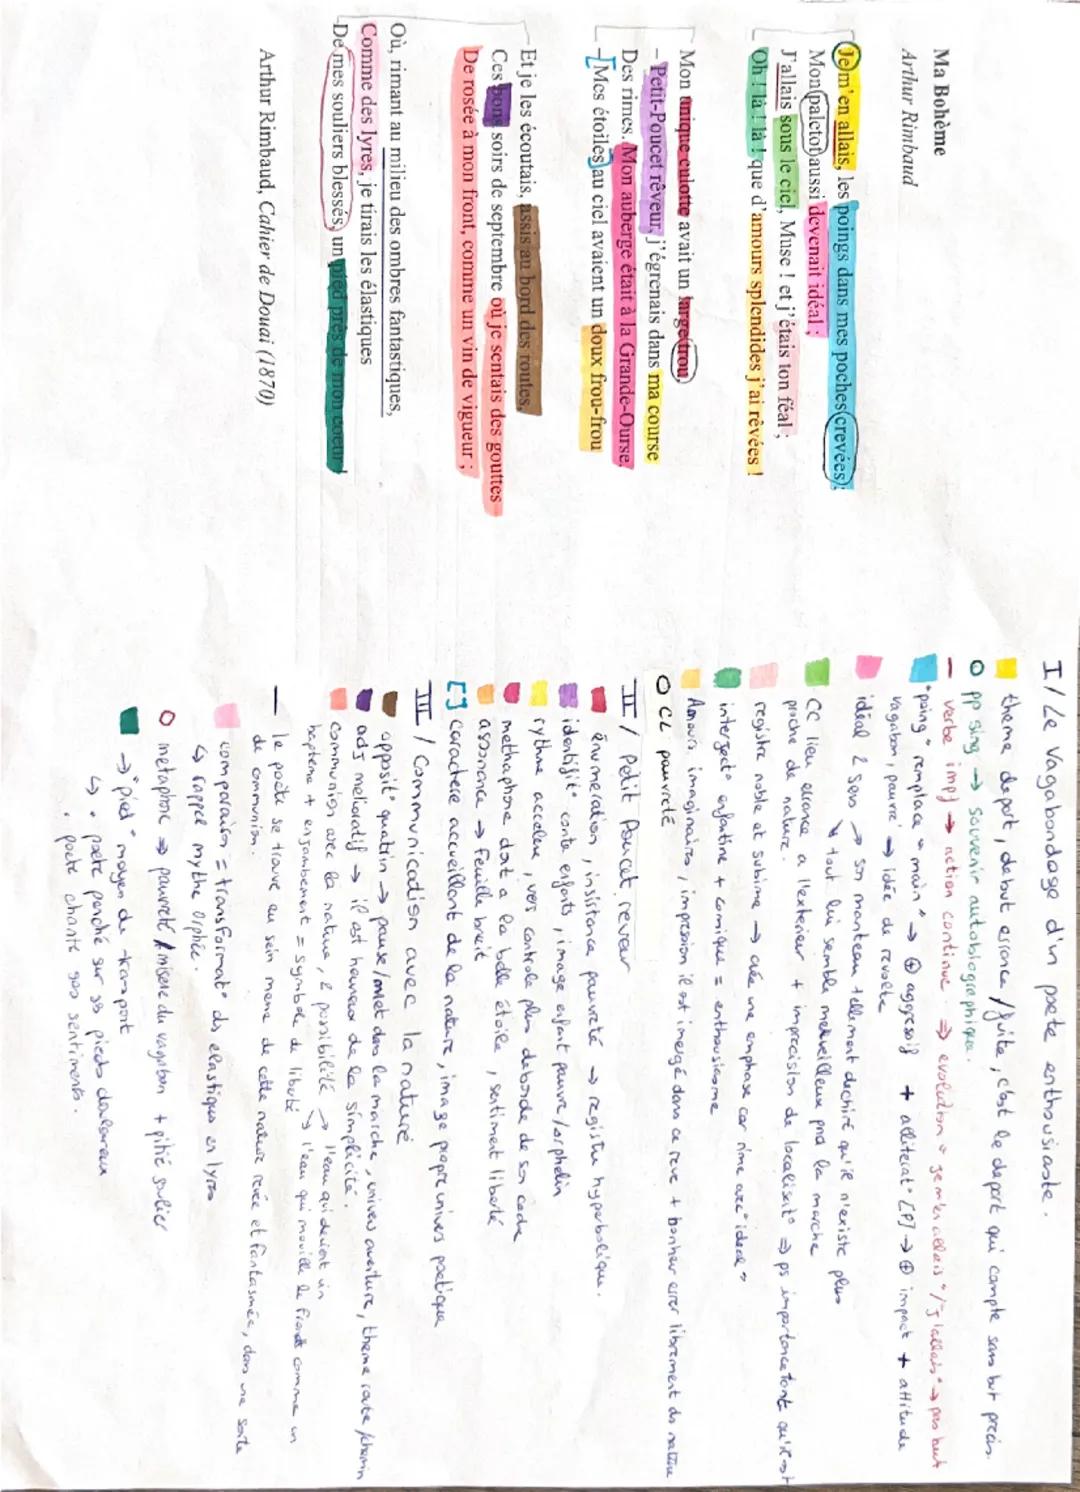 Ma Bohème
Arthur Rimbaud
Je m'en allais, les poings dans mes poches crevées ;
Mon paletot aussi devenait idéal ;
J'allais sous le ciel, Muse ! et j'étais ton féal ;
Oh ! là ! là ! que d'amours splendides j'ai rêvées !
Mon unique culotte avait un large trou.
– Petit-Poucet rêveur, j'égrenais dans ma course
Des rimes. Mon auberge était à la Grande-Ourse.
– Mes étoiles au ciel avaient un doux frou-frou
Et je les écoutais, assis au bord des routes,
Ces bons soirs de septembre où je sentais des gouttes
De rosée à mon front, comme un vin de vigueur ;
Où, rimant au milieu des ombres fantastiques,
Comme des lyres, je tirais les élastiques
De mes souliers blessés, un pied près de mon coeur !
Arthur Rimbaud, Cahier de Douai (1870)
I/ Le Vagabondage d'un poete enthousiaste.
theme depart, debut errance / fuite, c'est le depart qui compte sans but precis.
pp sing → souvenir autobiographique.
verbe impf → action continue ⇒ evolution "je m'en allais"/"j'allais" → pas but
"poing" remplace "main" → ⊕ aggressif + alliterat° [P] → ⊕ impact + attitude
vagabon, pauvre → idée de revolte
idéal 2 sens → son manteau tellement dechiré qu'il n'existe plus
↘ tout lui semble merveilleux pna la marche
CC lieu errance a l'exterieur + imprecision de localisat° ⇒ ps importance tant qu'il est
proche de nature.
registre noble et sublime → crée une emphase car rime avec "ideal"
interject° enfantine + comique = enthousiasme
Amours imaginaires, impression il est imergé dans ce reve + bonheur errer librement ds nature
CL pauvreté
II/ Petit Poucet rêveur
énumeration, insistance pauvreté → registre hyperbolique.
identificat° conte enfants, image enfant pauvre/orphelin
rythme accelere, vers controle plus deborde de son cadre
methaphore dort a la belle étoile, sentiment liberté
assonance → feuille bruit
[ ] Caractere accueillant de la nature, image propre univers poetique
III/ Communication avec la nature
opposit° quatrin → pause/arret dans la marche, univers aventure, theme route/chemin
adj melioratif → il est heureux de la simplicité.
communion avec la nature, 2 possibilité → l'eau qui devient vin
↘ l'eau qui mouille le front comme un
bapteme + enjambement = symbole de liberté
le poète se trouve au sein meme de cette nature revée et fantasmée, dans une sorte
de communion.
comparaison = transformat° des elastiques en lyres
↳ rappel mythe orphée.
métaphore ⇒ pauvreté / misère du vagabon + pitié soulier
→ "pied" moyen de transport
↳ • poète penché sur ses pieds douloureux
• poete chante ses sentiments.